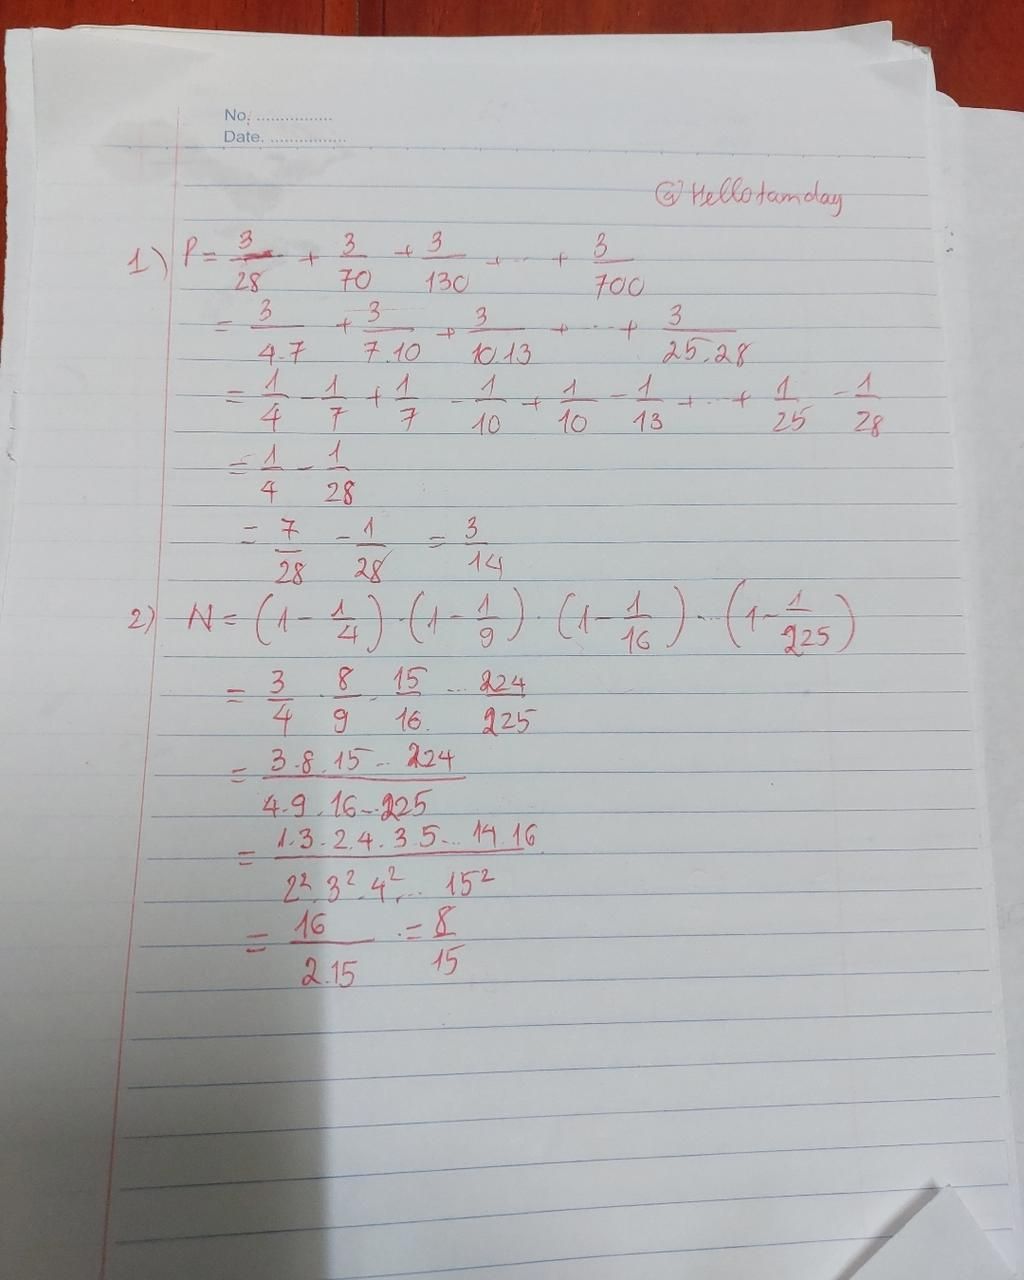 No. ................
Date. ................
@Hellotamday
1) P = 3/28 + 3/70 + 3/130 + ... + 3/700
= 3/4.7 + 3/7.10 + 3/10.13 + ... + 3/25.28
= 1/4 - 1/7 + 1/7 - 1/10 + 1/10 - 1/13 + ... + 1/25 - 1/28
= 1/4 - 1/28
= 7/28 - 1/28 = 3/14
2) N = (1 - 1/4) . (1 - 1/9) . (1 - 1/16) ... (1 - 1/225)
= 3/4 . 8/9 . 15/16 ... 224/225
= 3.8.15...224 / 4.9.16...225
= 1.3.2.4.3.5...14.16 / 2².3².4²...15²
= 16/2.15 = 8/15